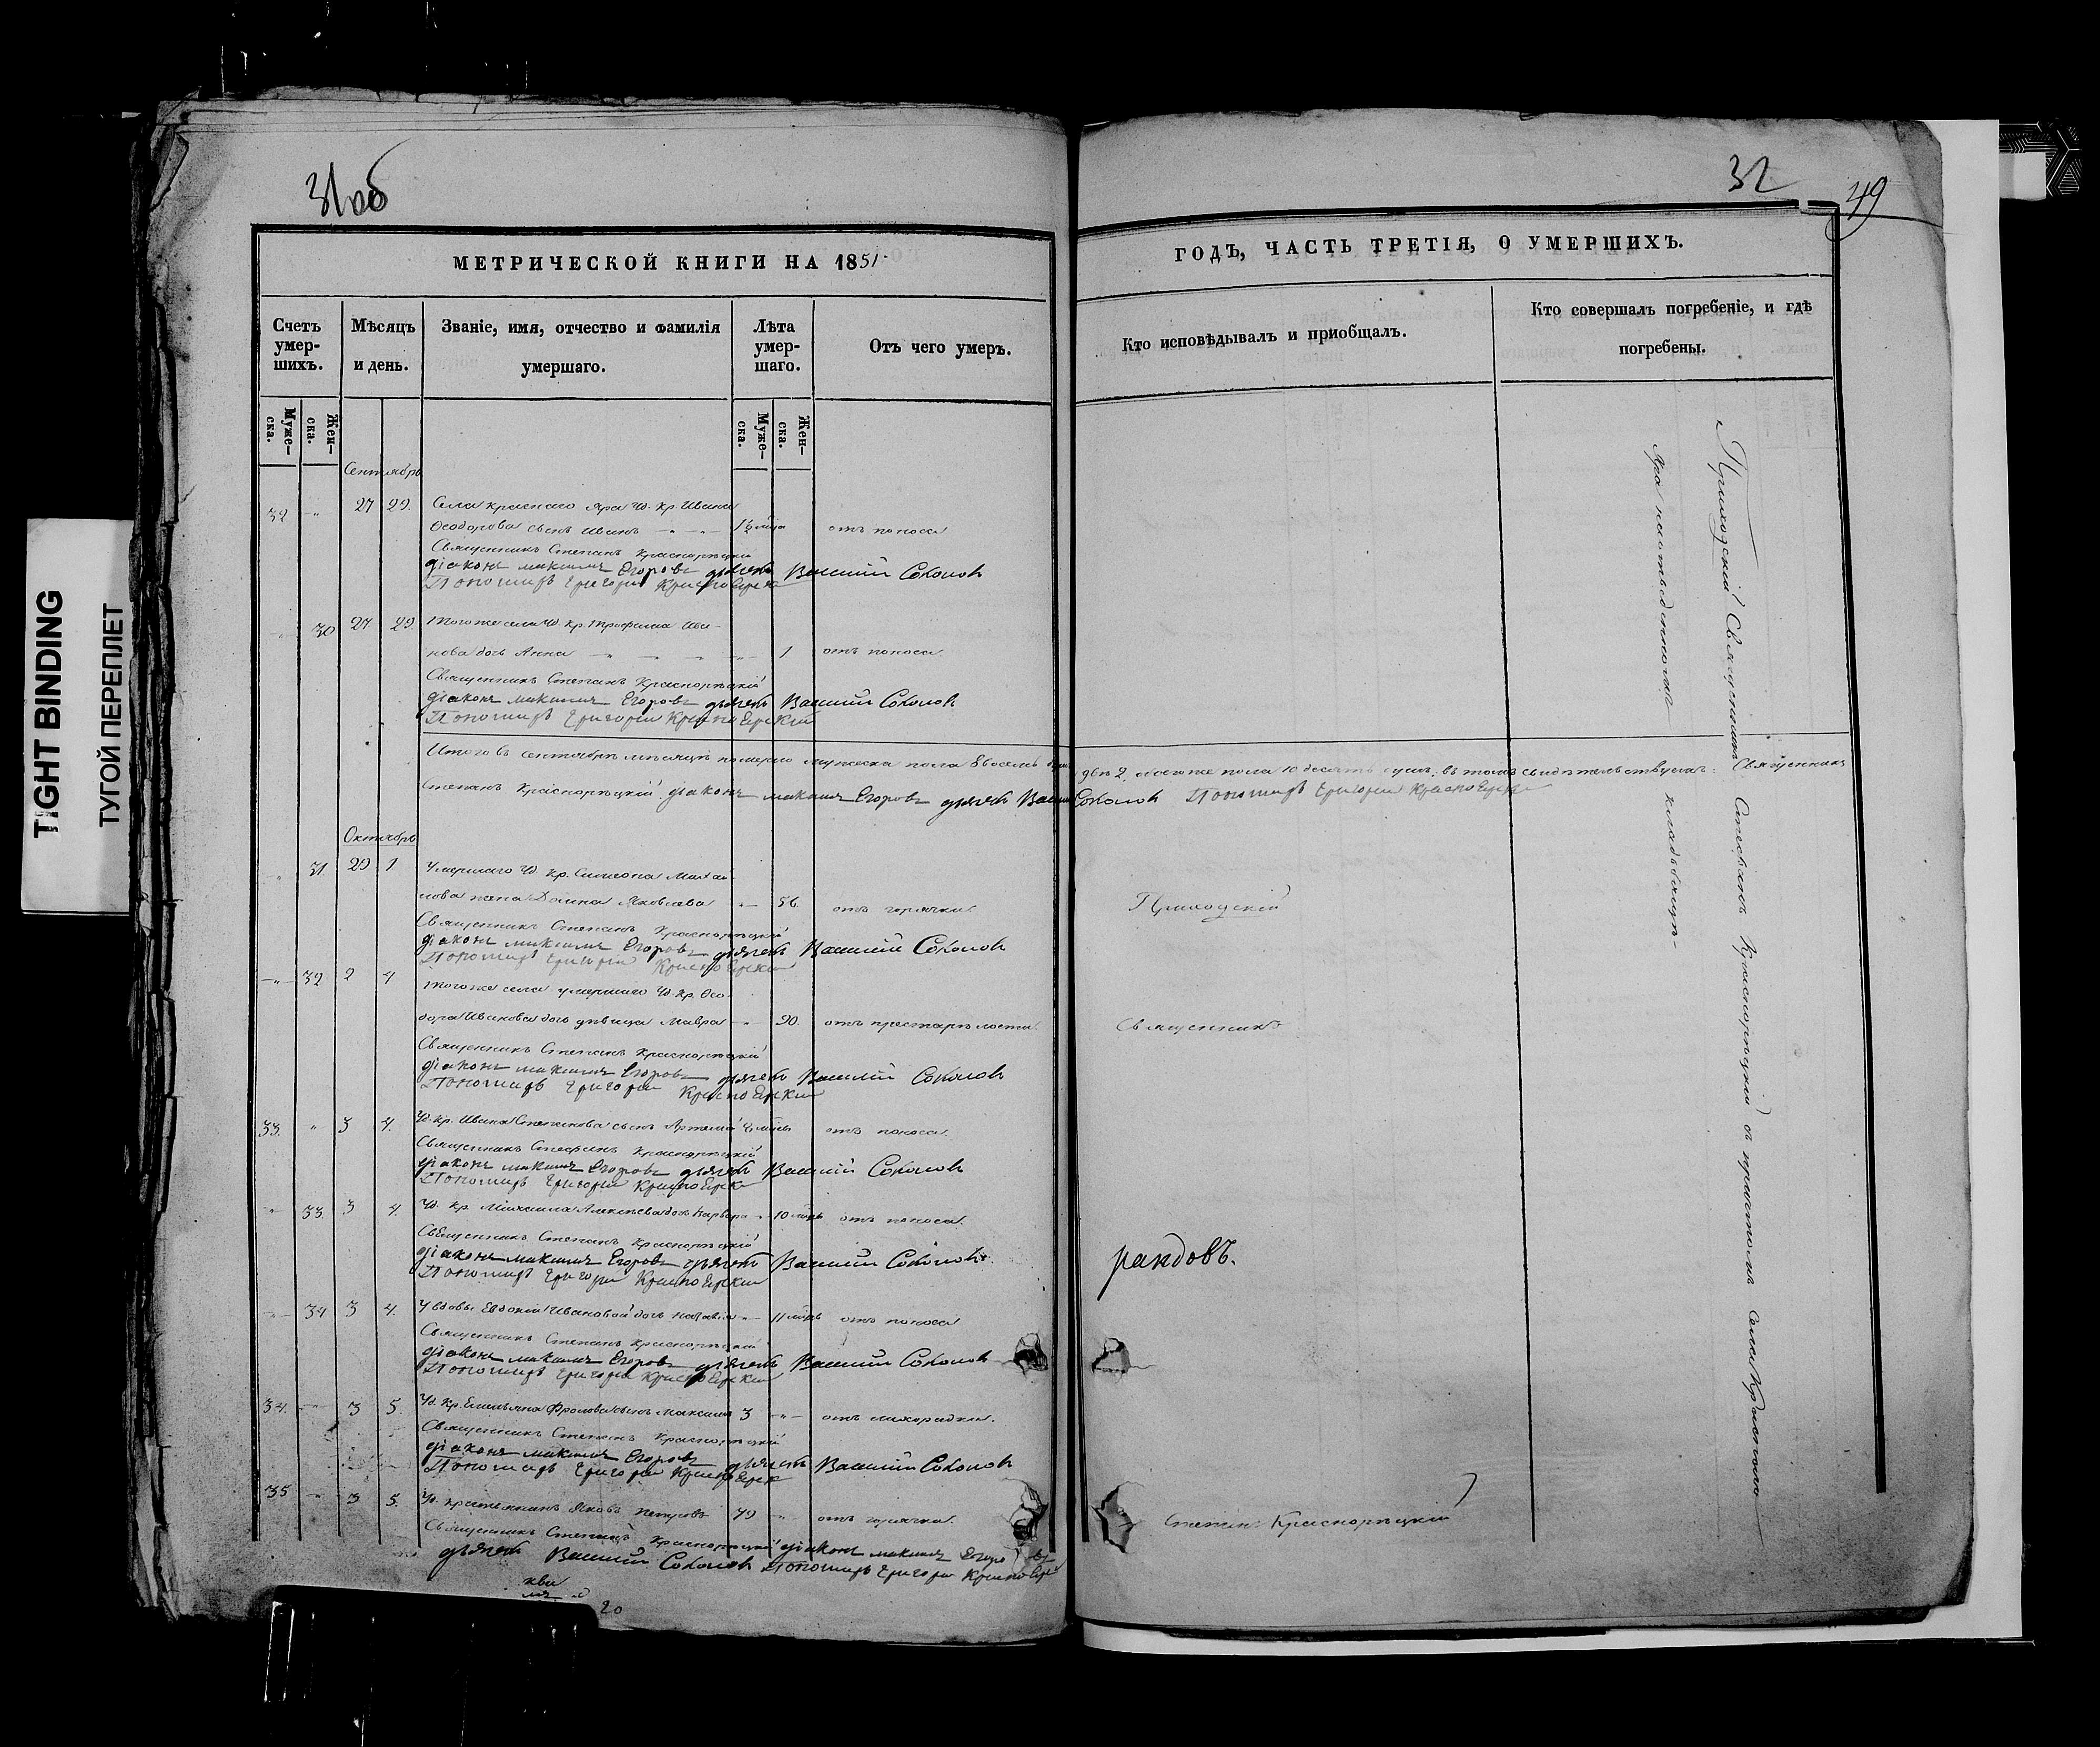 31 об
32
49
TIGHT BINDING
ТУГОЙ ПЕРЕПЛЕТ
МЕТРИЧЕСКОЙ КНИГИ НА 1851
ГОДЪ, ЧАСТЬ ТРЕТІЯ, О УМЕРШИХЪ.
Счетъ умер-шихъ.
Мѣсяцъ и день.
Званіе, имя, отчество и фамилія умершаго.
Лѣта умер-шаго.
Отъ чего умеръ.
Кто исповѣдывалъ и приобщалъ.
Кто совершалъ погребеніе, и гдѣ погребены.
Муже-ска.
Жен-ска.
Муже-ска.
Жен-ска.
Сентябрь
32 27 29. Села Краснаго Яра Уд. Кр. Ивана
Ѳеодорова сынъ Иванъ отъ поноса
Священникъ Степанъ Краснорѣцкій
діаконъ максимъ Егоровъ дьячекъ Василій Соколовъ
Пономарь Григорій
30 27 29. Того же села Уд. Кр. Трофима Ива-
нова дочь Анна 1 отъ поноса.
Священникъ Степанъ Краснорѣцкій
діаконъ максимъ Егоровъ дьячекъ Василій Соколовъ
Пономарь Григорій
Итого въ сентябрѣ мѣсяцѣ померло мужеска пола 8 восемь двѣ 2. обоего же пола 10 десять душъ; въ томъ свидѣтельствуемъ: Священникъ
Степанъ Краснорѣцкій діаконъ максимъ Егоровъ дьячекъ Василій Соколовъ Пономарь Григорій
Октябрь
31. 29 1. Умершаго Уд. Кр. Симеона Михай-
лова жена Домна Яковлева 56. отъ горячки.
Священникъ Степанъ Краснорѣцкій
діаконъ максимъ Егоровъ дьячекъ Василій Соколовъ
Пономарь Григорій
32 2 4 Того же села умершаго Уд. Кр. Ѳео-
дора Иванова дочь дѣвица Мавра 90. отъ престарѣлости.
Священникъ Степанъ Краснорѣцкій
діаконъ максимъ Егоровъ дьячекъ Василій Соколовъ
Пономарь Григорій
33. 3 4. Уд. Кр. Ивана Степанова сынъ Артемій отъ поноса.
Священникъ Стефанъ Краснорѣцкій
діаконъ максимъ Егоровъ дьячекъ Василій Соколовъ
Пономарь Григорій
33. 3 4. Уд. Кр. Михаила Алексѣева дочь Варвара 10 отъ поноса.
Священникъ Степанъ Краснорѣцкій
діаконъ максимъ Егоровъ дьячекъ Василій Соколовъ.
Пономарь Григорій
34 3 4. У вдовы Евдокіи Ивановой дочь Наталія 11 отъ поноса
Священникъ Степанъ Краснорѣцкій
діаконъ максимъ Егоровъ дьячекъ Василій Соколовъ
Пономарь Григорій
34. 3 5. Уд. Кр. Емельяна Фролова сынъ Максимъ 3 отъ лихорадки.
Священникъ Степанъ Краснорѣцкій
діаконъ максимъ Егоровъ дьячекъ Василій Соколовъ
Пономарь Григорій
35 3 5. Уд. крестьянинъ Яковъ Петровъ 49 отъ горячки.
Священникъ Степанъ Краснорѣцкій діаконъ максимъ Егоровъ
дьячекъ Василій Соколовъ Пономарь Григорій
20
Приходскій
Священникъ
Степанъ Краснорѣцкій
Приходскій Священникъ Стефанъ Краснорѣцкій съ причтомъ Села Краснаго
Яра на кладбищѣ